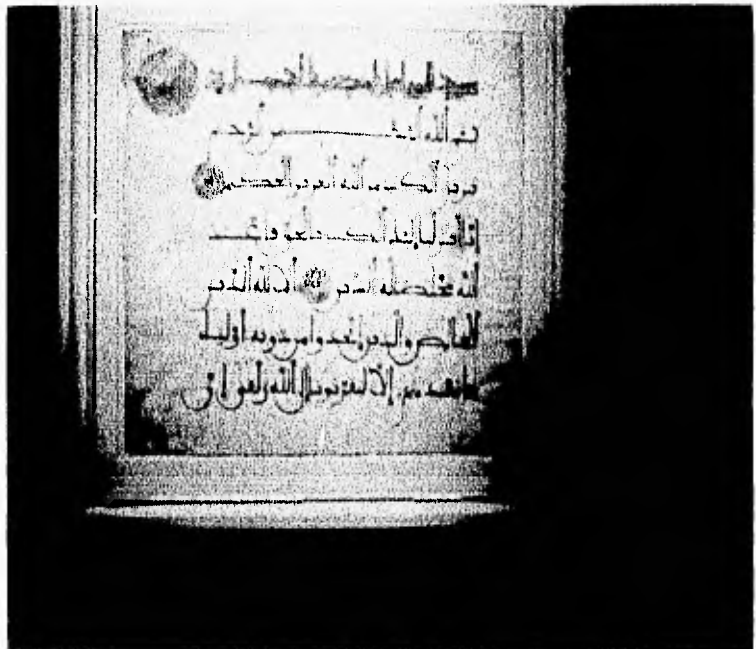 بسم الله الرحمن الرحيم
تنزيل الكتب من الله العزيز الحكيم
إنا أنزلنا إليك الكتب بالحق فاعبد
الله مخلصا له الدين ألا لله الدين
الخالص والذين اتخذوا من دونه أوليا
ما نعبدهم إلا ليقربونا إلى الله زلفى إن